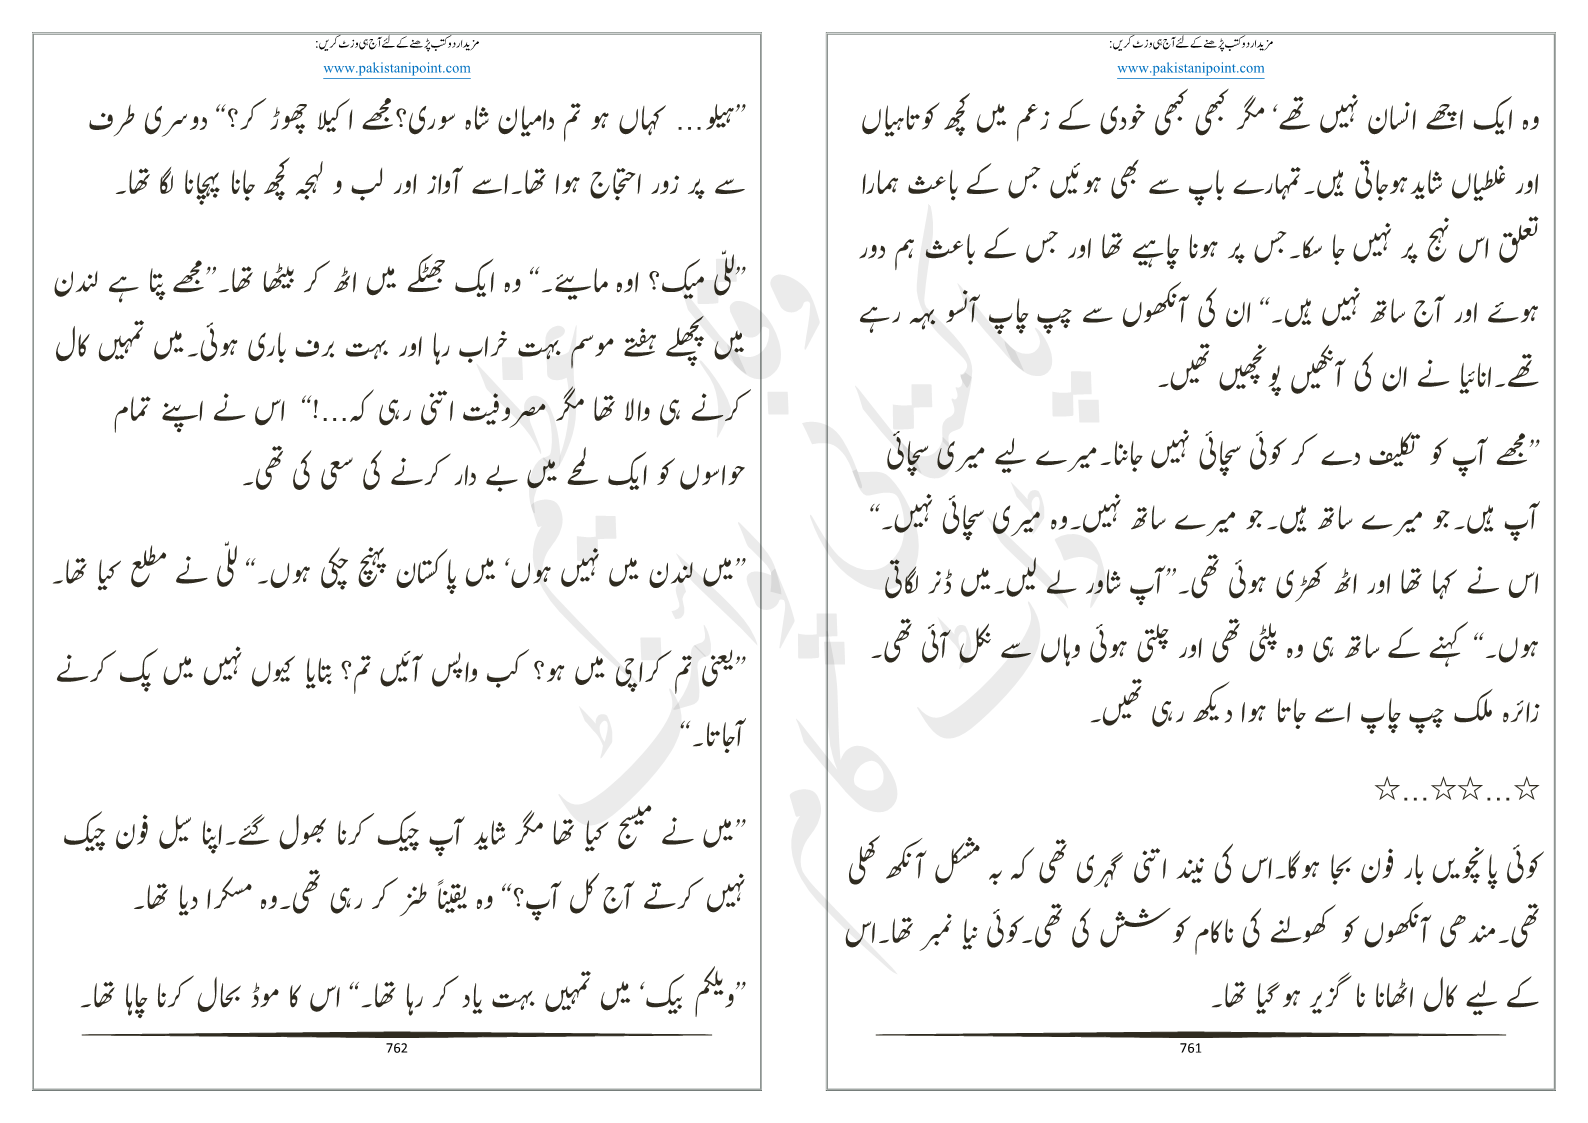 مزید اردو کتب پڑھنے کے لئے آج ہی وزٹ کریں:
www.pakistanipoint.com
وہ ایک اچھے انسان نہیں تھے‘ مگر کبھی کبھی خودی کے زعم میں کچھ کوتاہیاں
اور غلطیاں شاید ہوجاتی ہیں۔تمہارے باپ سے بھی ہوئیں جس کے باعث ہمارا
تعلق اس نہج پر نہیں جا سکا۔جس پر ہونا چاہیے تھا اور جس کے باعث ہم دور
ہوئے اور آج ساتھ نہیں ہیں۔“ ان کی آنکھوں سے چپ چاپ آنسو بہہ رہے
تھے۔انائیا نے ان کی آنکھیں پونچھیں تھیں۔
”مجھے آپ کو تکلیف دے کر کوئی سچائی نہیں جاننا۔میرے لیے میری سچائی
آپ ہیں۔جو میرے ساتھ ہیں۔جو میرے ساتھ نہیں۔وہ میری سچائی نہیں۔“
اس نے کہا تھا اور اٹھ کھڑی ہوئی تھی۔”آپ شاور لے لیں۔میں ڈنر لگاتی
ہوں۔“ کہنے کے ساتھ ہی وہ پلٹی تھی اور چلتی ہوئی وہاں سے نکل آئی تھی۔
زائرہ ملک چپ چاپ اسے جاتا ہوا دیکھ رہی تھیں۔
☆…☆☆…☆
کوئی پانچویں بار فون بجا ہوگا۔اس کی نیند اتنی گہری تھی کہ بہ مشکل آنکھ کھلی
تھی۔مندھی آنکھوں کو کھولنے کی ناکام کوشش کی تھی۔کوئی نیا نمبر تھا۔اس
کے لیے کال اٹھانا نا گزیر ہو گیا تھا۔
761
مزید اردو کتب پڑھنے کے لئے آج ہی وزٹ کریں:
www.pakistanipoint.com
”ہیلو… کہاں ہو تم دامیان شاہ سوری؟مجھے اکیلا چھوڑ کر؟“ دوسری طرف
سے پر زور احتجاج ہوا تھا۔اسے آواز اور لب و لہجہ کچھ جانا پہچانا لگا تھا۔
”للّی میک؟ اوہ مایئے۔“ وہ ایک جھٹکے میں اٹھ کر بیٹھا تھا۔”مجھے پتا ہے لندن
میں پچھلے ہفتے موسم بہت خراب رہا اور بہت برف باری ہوئی۔میں تمہیں کال
کرنے ہی والا تھا مگر مصروفیت اتنی رہی کہ…!“ اس نے اپنے تمام
حواسوں کو ایک لمحے میں بے دار کرنے کی سعی کی تھی۔
”میں لندن میں نہیں ہوں‘ میں پاکستان پہنچ چکی ہوں۔“ للّی نے مطلع کیا تھا۔
”یعنی تم کراچی میں ہو؟ کب واپس آئیں تم؟ بتایا کیوں نہیں میں پک کرنے
آجاتا۔“
”میں نے میسج کیا تھا مگر شاید آپ چیک کرنا بھول گئے۔اپنا سیل فون چیک
نہیں کرتے آج کل آپ؟“ وہ یقیناً طنز کر رہی تھی۔وہ مسکرا دیا تھا۔
”ویلکم بیک‘ میں تمہیں بہت یاد کر رہا تھا۔“ اس کا موڈ بحال کرنا چاہا تھا۔
762